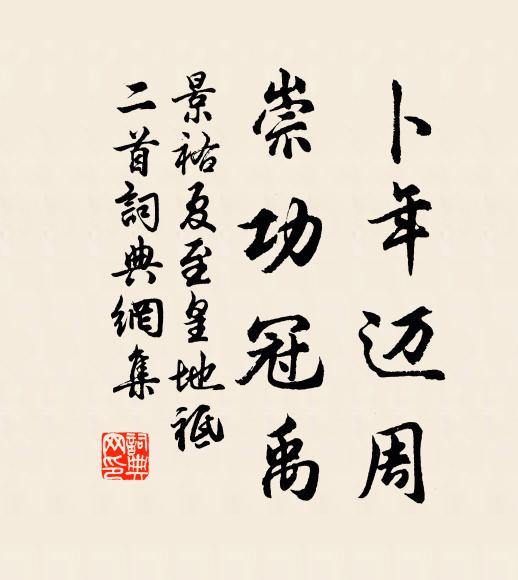 卜年迈周
崇功冠禹
景祐夏至皇地祇
二首詞典網集
詞典网印